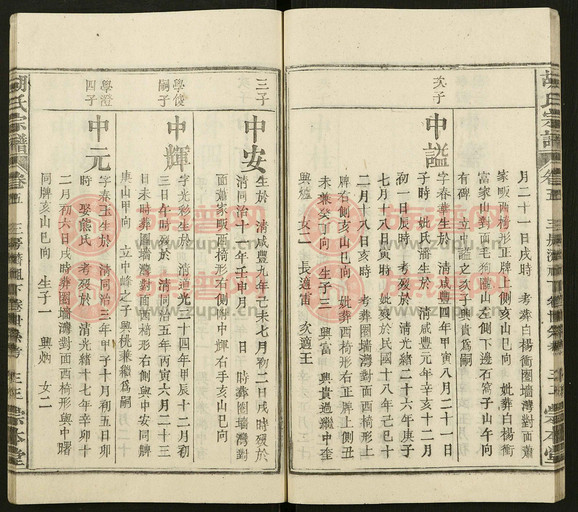 胡氏宗譜
卷五
宗本堂
月二十一日戌時 考葬白楊衝圈墻灣對面蕭
家畈西椅形正牌上側亥山巳向 妣葬白楊衝
富家山對面毛狗隴山左側下邊石窩子山午向
有碑 立中謐之次子興貴爲嗣
次子
中謐
字春華生於 清咸豐四年甲寅八月二十一日
子時 妣氏潘生於 清咸豐元年辛亥十二月
初一日辰時 考歿於 清光緒二十六年庚子
七月十八日寅時 妣歿於民國十八年己巳十
二月十八日亥時 考葬圈墻灣對面西椅形上
牌右側亥山巳向 妣葬西椅形右正牌上側丑
未兼癸丁向 生子三 興富 興貴過繼中奎
興 女二 長適雷 次適王
三子
中安
生於 清咸豐九年己未七月初二日戌時歿於
清同治十一年壬申月 日 時葬圈墻灣對
面蕭家畈西椅形右側緊中輝右手亥山巳向
學俊
嗣子
中輝
字光彩生於 清道光二十四年甲辰十二月初
三日午時歿於 清同治五年丙寅六月二十三
日未時葬圈墻灣對面西椅形右側與中安同牌
庚山甲向 立中峰之子興桃兼繼爲嗣
學澄
四子
中元
字春玉生於 清同治三年甲子十月初五日卯
時 娶熊氏 考歿於 清光緒十七年辛卯十
二月初六日戌時葬圈墻灣對面西椅形與中曙
同牌亥山巳向 生子一 興 女二
胡氏宗譜
卷五
宗本堂